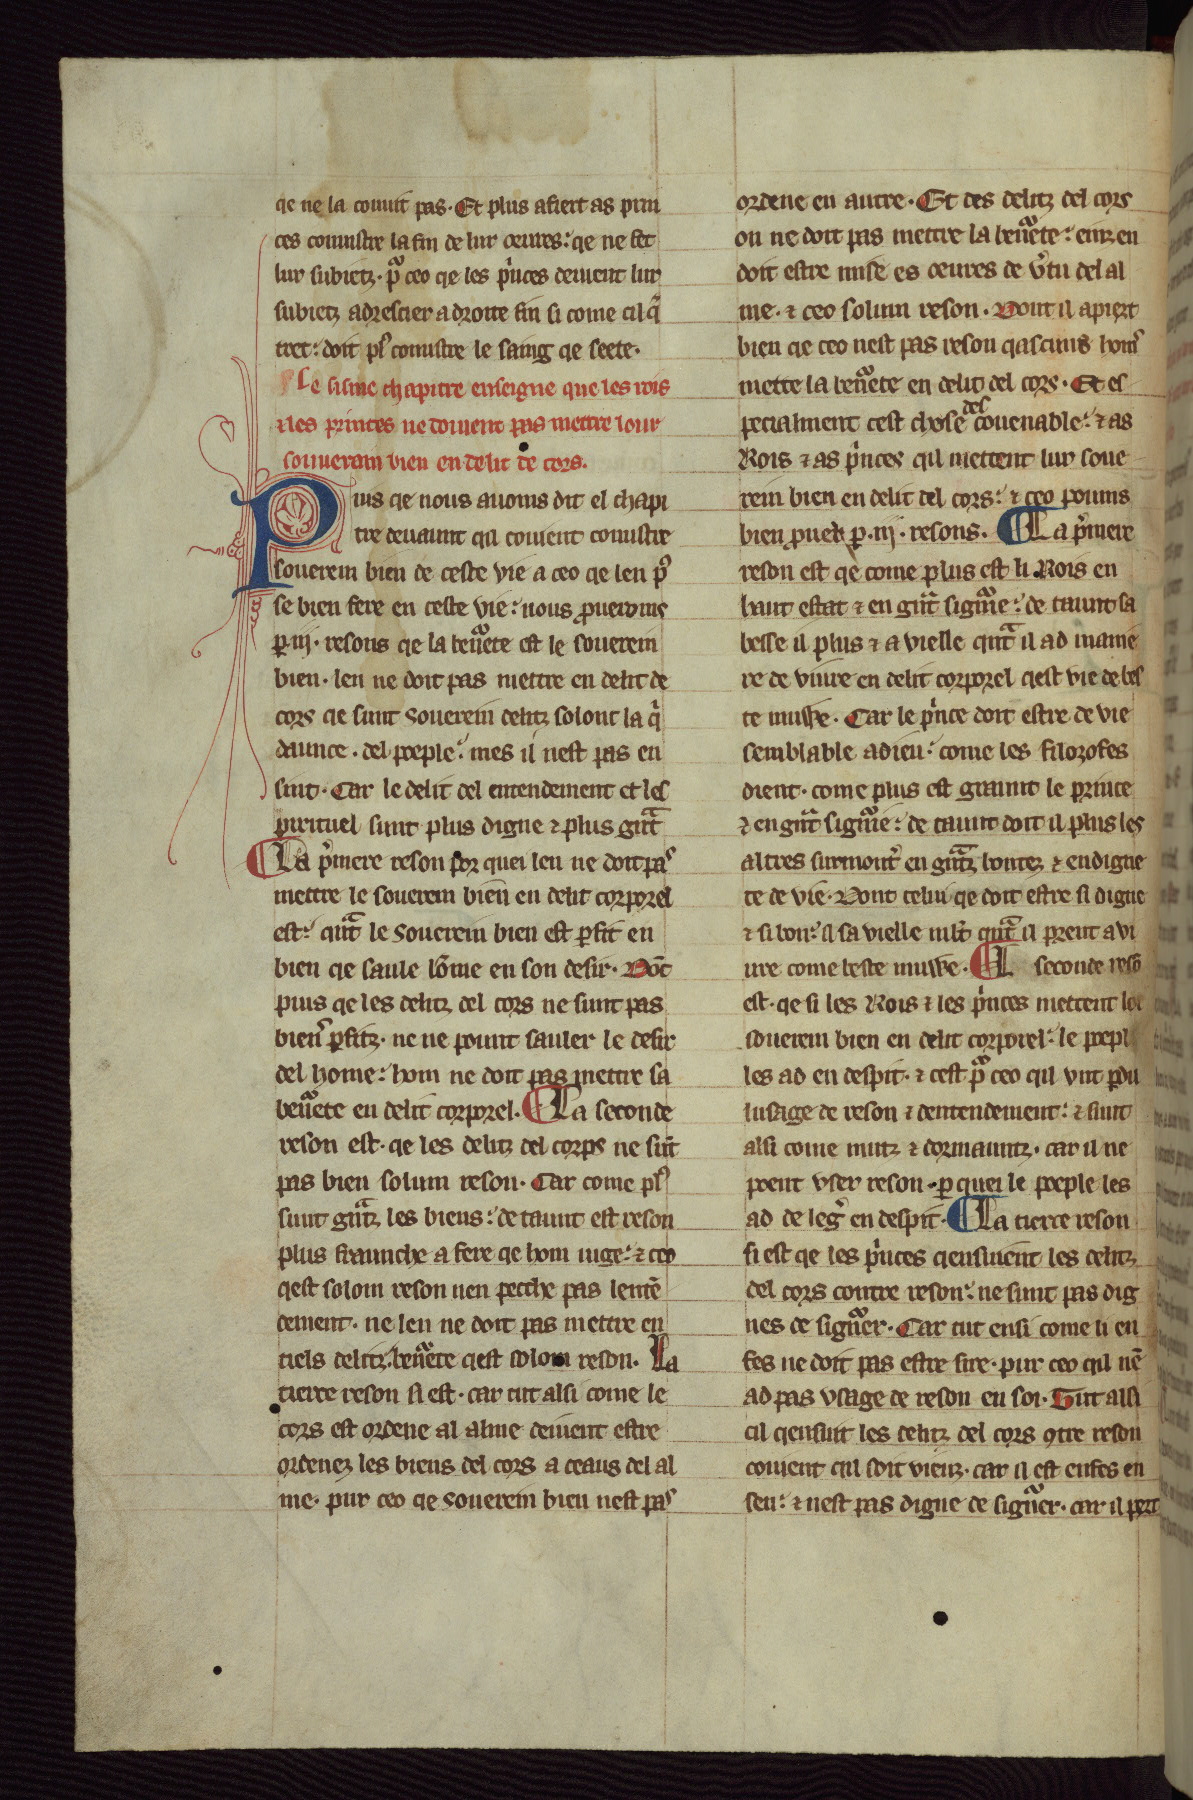 qe ne la conuit pas. Et plus afiert as prin
ces conustre la fin de lur oeures: qe ne fet
lur subietz. pͣ ceo qe les pͥnces deiuent lur
subietz adrescier a droite fin si come cil qͥ
tret: doit plꝰ conustre le saing qe seete.
Le sisme chapitre enseigne que les rois
⁊ les princes ne doiuent pas mettre lour
souuerain bien en delit de cors.
Puis qe nous auoms dit el chapi
tre deuaunt qil couient conustre
souerein bien de ceste vie a ceo qe len pꝰ
se bien fere en ceste vie: nous ꝓueroms
ꝑ .iij. resons qe la benͣete est le souerein
bien. len ne doit pas mettre en delit de
cors qe sunt souerein delitz solont la qͥ
daunce. del poeple: mes il nest pas en
sint. Car le delit del entendement et les
pirituel sunt plus digne ⁊ plus gͣnt
La pͥmere reson por quei len ne doit pas
mettre le souerein bien en delit corporel
est: qͣnt le souerein bien est ꝑfit en
bien qe saule lōme en son desir. Dōt
puis qe les delitz del cors ne sunt pas
biens ꝑfitz. ne ne pount sauler le desir
del home: hom ne doit pas mettre sa
benͣete en delit corporel. La seconde
reson est. qe les delitz del corps ne sūt
pas bien solum reson. Car come plꝰ
sunt gͣntz les biens: de taunt est reson
plus fraunche a fere qe hom iuge: ⁊ ceo
qest solom reson nen pecche pas lentē
dement. ne len ne doit pas mettre en
tiels delitz. benͣete qest solom reson. La
tierce reson si est. car tut alsi come le
cors est ordene al alme deiuent estre
ordenez les biens del cors a ceaus del al
me. pur ceo qe souerein bien nest pas
ordene en autre. Et des delitz del cors
on ne doit pas mettre la benͣete: einz en
doit estre mise es oeures de vͥtu del al
me. ⁊ ceo solum reson. Dont il apiert
bien qe ceo nest pas reson qascuns homꝰ
mette la benͣete en delit del cors. Et es
pecialment cest chose des couenable: ⁊ as
Rois ⁊ as pͥnces qil mettent lur soue
rein bien en delit del cors: ⁊ ceo poums
bien ꝓuer ꝑ .iij. resons. La pͥmere
reson est qe come plus est li Rois en
haut estat ⁊ en gͣnt signͣie: de taunt sa
besse il plus ⁊ a vielle qͣnt il ad manie
re de viure en delit corporel qest vie de bes
te muwe. Car le pͥnce doit estre de vie
semblable a dieu: come les filozofes
dient. come plus est graunt le prince
⁊ en gͣnt signͣie: de taunt doit il plus les
altres surmontͥ en gͣntz bontez ⁊ en digne
te de vie. Dont celui qe doit estre si digne
⁊ si bon: il sa vielle mlt̄ qͣnt il prent a vi
ure come beste muwe. L seconde resō
est. qe si les Rois ⁊ les pͥnces mettent lor
souerein bien en delit corporel: le poepl
les ad en despit. ⁊ cest pͣ ceo qil vnt ꝑdu
lusage de reson ⁊ dentendement: ⁊ sunt
alsi come mutz ⁊ dormauntz. car il ne
poent vser reson. ꝑ quei le poeple les
ad de legͥ en despit. La tierce reson
si est qe les pͥnces qensiuent les delitz
del cors contre reson: ne sunt pas dig
nes de signͣer. Car tut ensi come li en
fes ne doit pas estre sire. pur ceo qil nē
ad pas vsage de reson en soi. Tut alsi
cil qensuit les delitz del cors ꝯtre reson
couient qil soit vieuz. car il est enfes en
sen: ⁊ nest pas digne de signͣer. car il pert